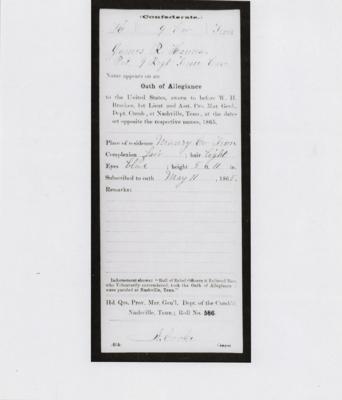 (Confederate.)
H 9 Cav Tenn
James R
Pvt 9 Regt Tenn Cav
Name appears on an
Oath of Allegiance
to the United States, sworn to before W. H.
Bracken, 1st Lieut and Asst. Pro. Mar. Genl.,
Dept. Cumb., at Nashville, Tenn., at the dates
set opposite the respective names, 1865.
Place of residence Maury Co Tenn
Complexion fair; hair light
Eyes blue; height 5 ft. 11 in.
Subscribed to oath May 11, 1865.
Remarks:
Indorsement shows: "Roll of Rebel Officers & Enlisted Men,
who Voluntarily surrendered, took the Oath of Allegiance
were paroled at Nashville, Tenn."
Hd. Qrs. Prov. Mar. Gen'l, Dept. of the Cumb'd,
Nashville, Tenn.; Roll No. 586
Copyist.